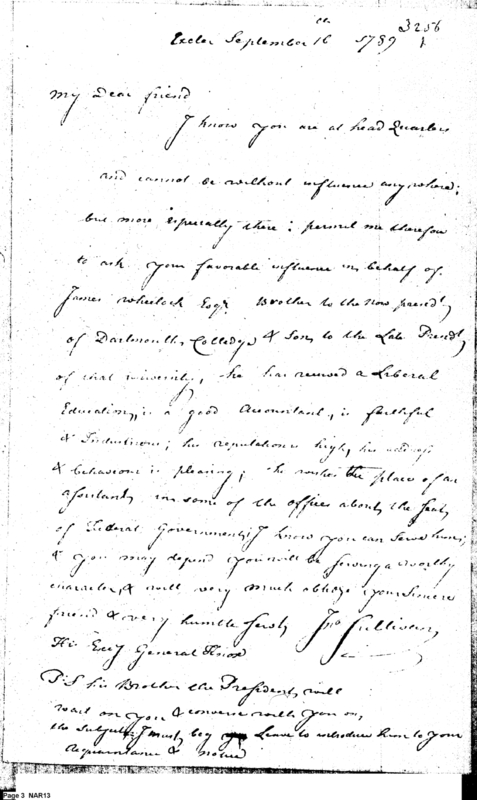 3256
Exeter September 16th 1789
My Dear friend
I know you are at head Quarters
and cannot be without influence any where;
but more especially there; permit me therefore
to ask your favorable influence in behalf of
James Wheelock Esqr. Brother to the now presdt
of Dartmouth Colledge & Son to the Late Presdt
of that university, he has received a Liberal
Education, is a good Accountant, is faithful
& Industrious; his reputation is high, his address
& behaviour is pleasing; he wishes the place of an
assistant in some of the offices about the Seat
of Federal Government; I know you can Serve him;
& you may depend you will be serving a worthy
character, & will very much oblige your Sincere
friend & very humble Servt Jno Sullivan
His Excy General Knox
P.S. his Brother the President will
wait on you & converse with you on
the Subject I must beg Leave to introduce him to your
Acquaintance & notice
Page 3 NAR13